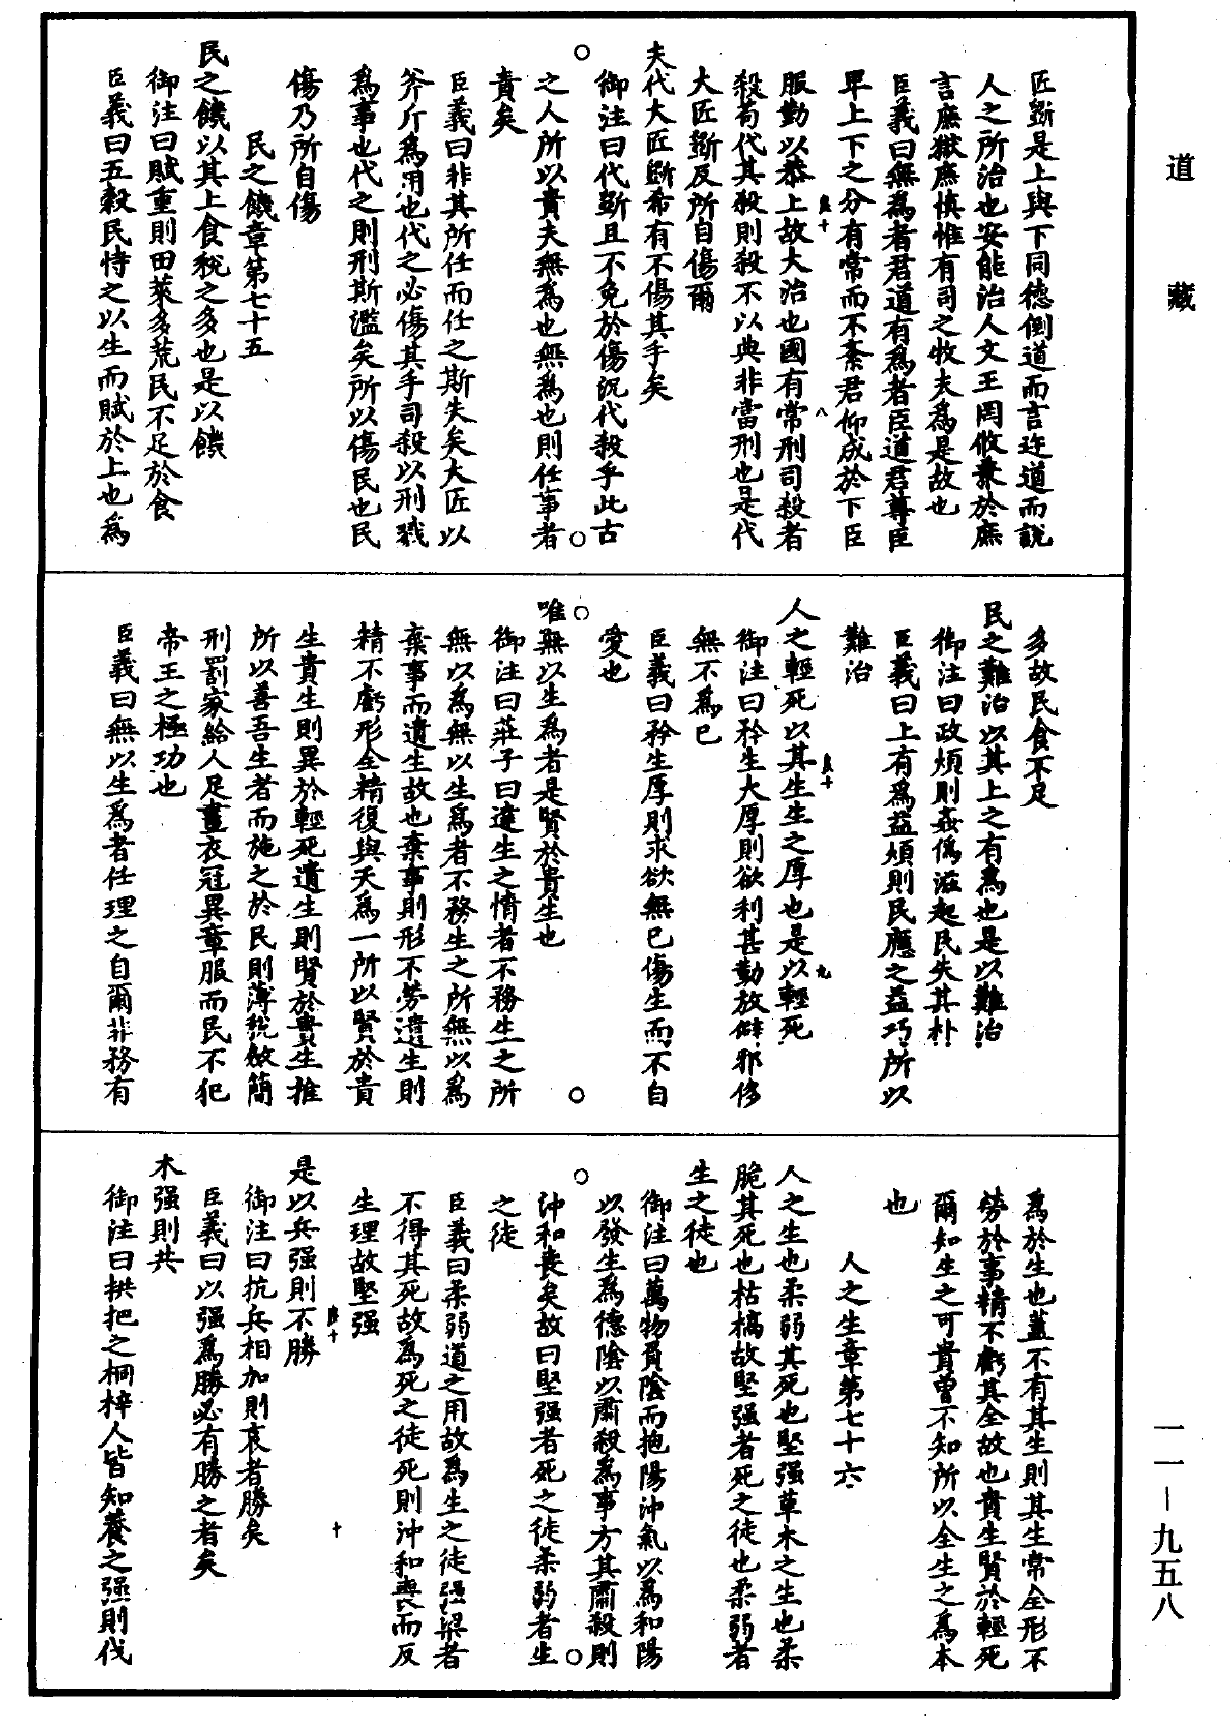 道藏
匠斲是上與下同德倒道而言迕道而說
人之所治也安能治人文王罔攸兼於庶
言庶獄庶慎惟有司之牧夫爲是故也
臣義曰無爲者君道有爲者臣道君尊臣
卑上下之分有常而不紊君仰成於下臣
服勤以恭上故大治也國有常刑司殺者
殺苟代其殺則殺不以典非當刑也是代
大匠斲反所自傷爾
夫代大匠斲希有不傷其手矣
御注曰代斲且不免於傷況代殺乎此古
之人所以貴夫無爲也無爲也則任事者
責矣
臣義曰非其所任而任之斯失矣大匠以
斧斤爲用也代之必傷其手司殺以刑戮
爲事也代之則刑斯濫矣所以傷民也民
傷乃所自傷
民之饑章第七十五
民之饑以其上食稅之多也是以饑
御注曰賦重則田萊多荒民不足於食
臣義曰五穀民恃之以生而賦於上也爲
多故民食不足
民之難治以其上之有爲也是以難治
御注曰政煩則姦僞滋起民失其朴
臣義曰上有爲益煩則民應之益巧所以
難治
人之輕死以其生生之厚也是以輕死
御注曰矜生大厚則欲利甚勤放僻邪侈
無不爲已
臣義曰矜生厚則求欲無已傷生而不自
愛也
唯無以生爲者是賢於貴生也
御注曰莊子曰達生之情者不務生之所
無以爲無以生爲者不務生之所無以爲
棄事而遺生故也棄事則形不勞遺生則
精不虧形全精復與天爲一所以賢於貴
生貴生則異於輕死遺生則賢於貴生推
所以善吾生者而施之於民則薄稅斂簡
刑罰家給人足畫衣冠異章服而民不犯
帝王之極功也
臣義曰無以生爲者任理之自爾非務有
爲於生也蓋不有其生則其生常全形不
勞於事精不虧其全故也貴生賢於輕死
爾知生之可貴曾不知所以全生之爲本
也
人之生章第七十六
人之生也柔弱其死也堅强草木之生也柔
脆其死也枯槁故堅强者死之徒也柔弱者
生之徒也
御注曰萬物負陰而抱陽沖氣以爲和陽
以發生爲德陰以肅殺爲事方其肅殺則
沖和喪矣故曰堅强者死之徒柔弱者生
之徒
臣義曰柔弱道之用故爲生之徒强梁者
不得其死故爲死之徒死則沖和喪而反
生理故堅强
是以兵强則不勝
御注曰抗兵相加則哀者勝矣
臣義曰以强爲勝必有勝之者矣
木强則共
御注曰拱把之桐梓人皆知養之强則伐
一一－九五八